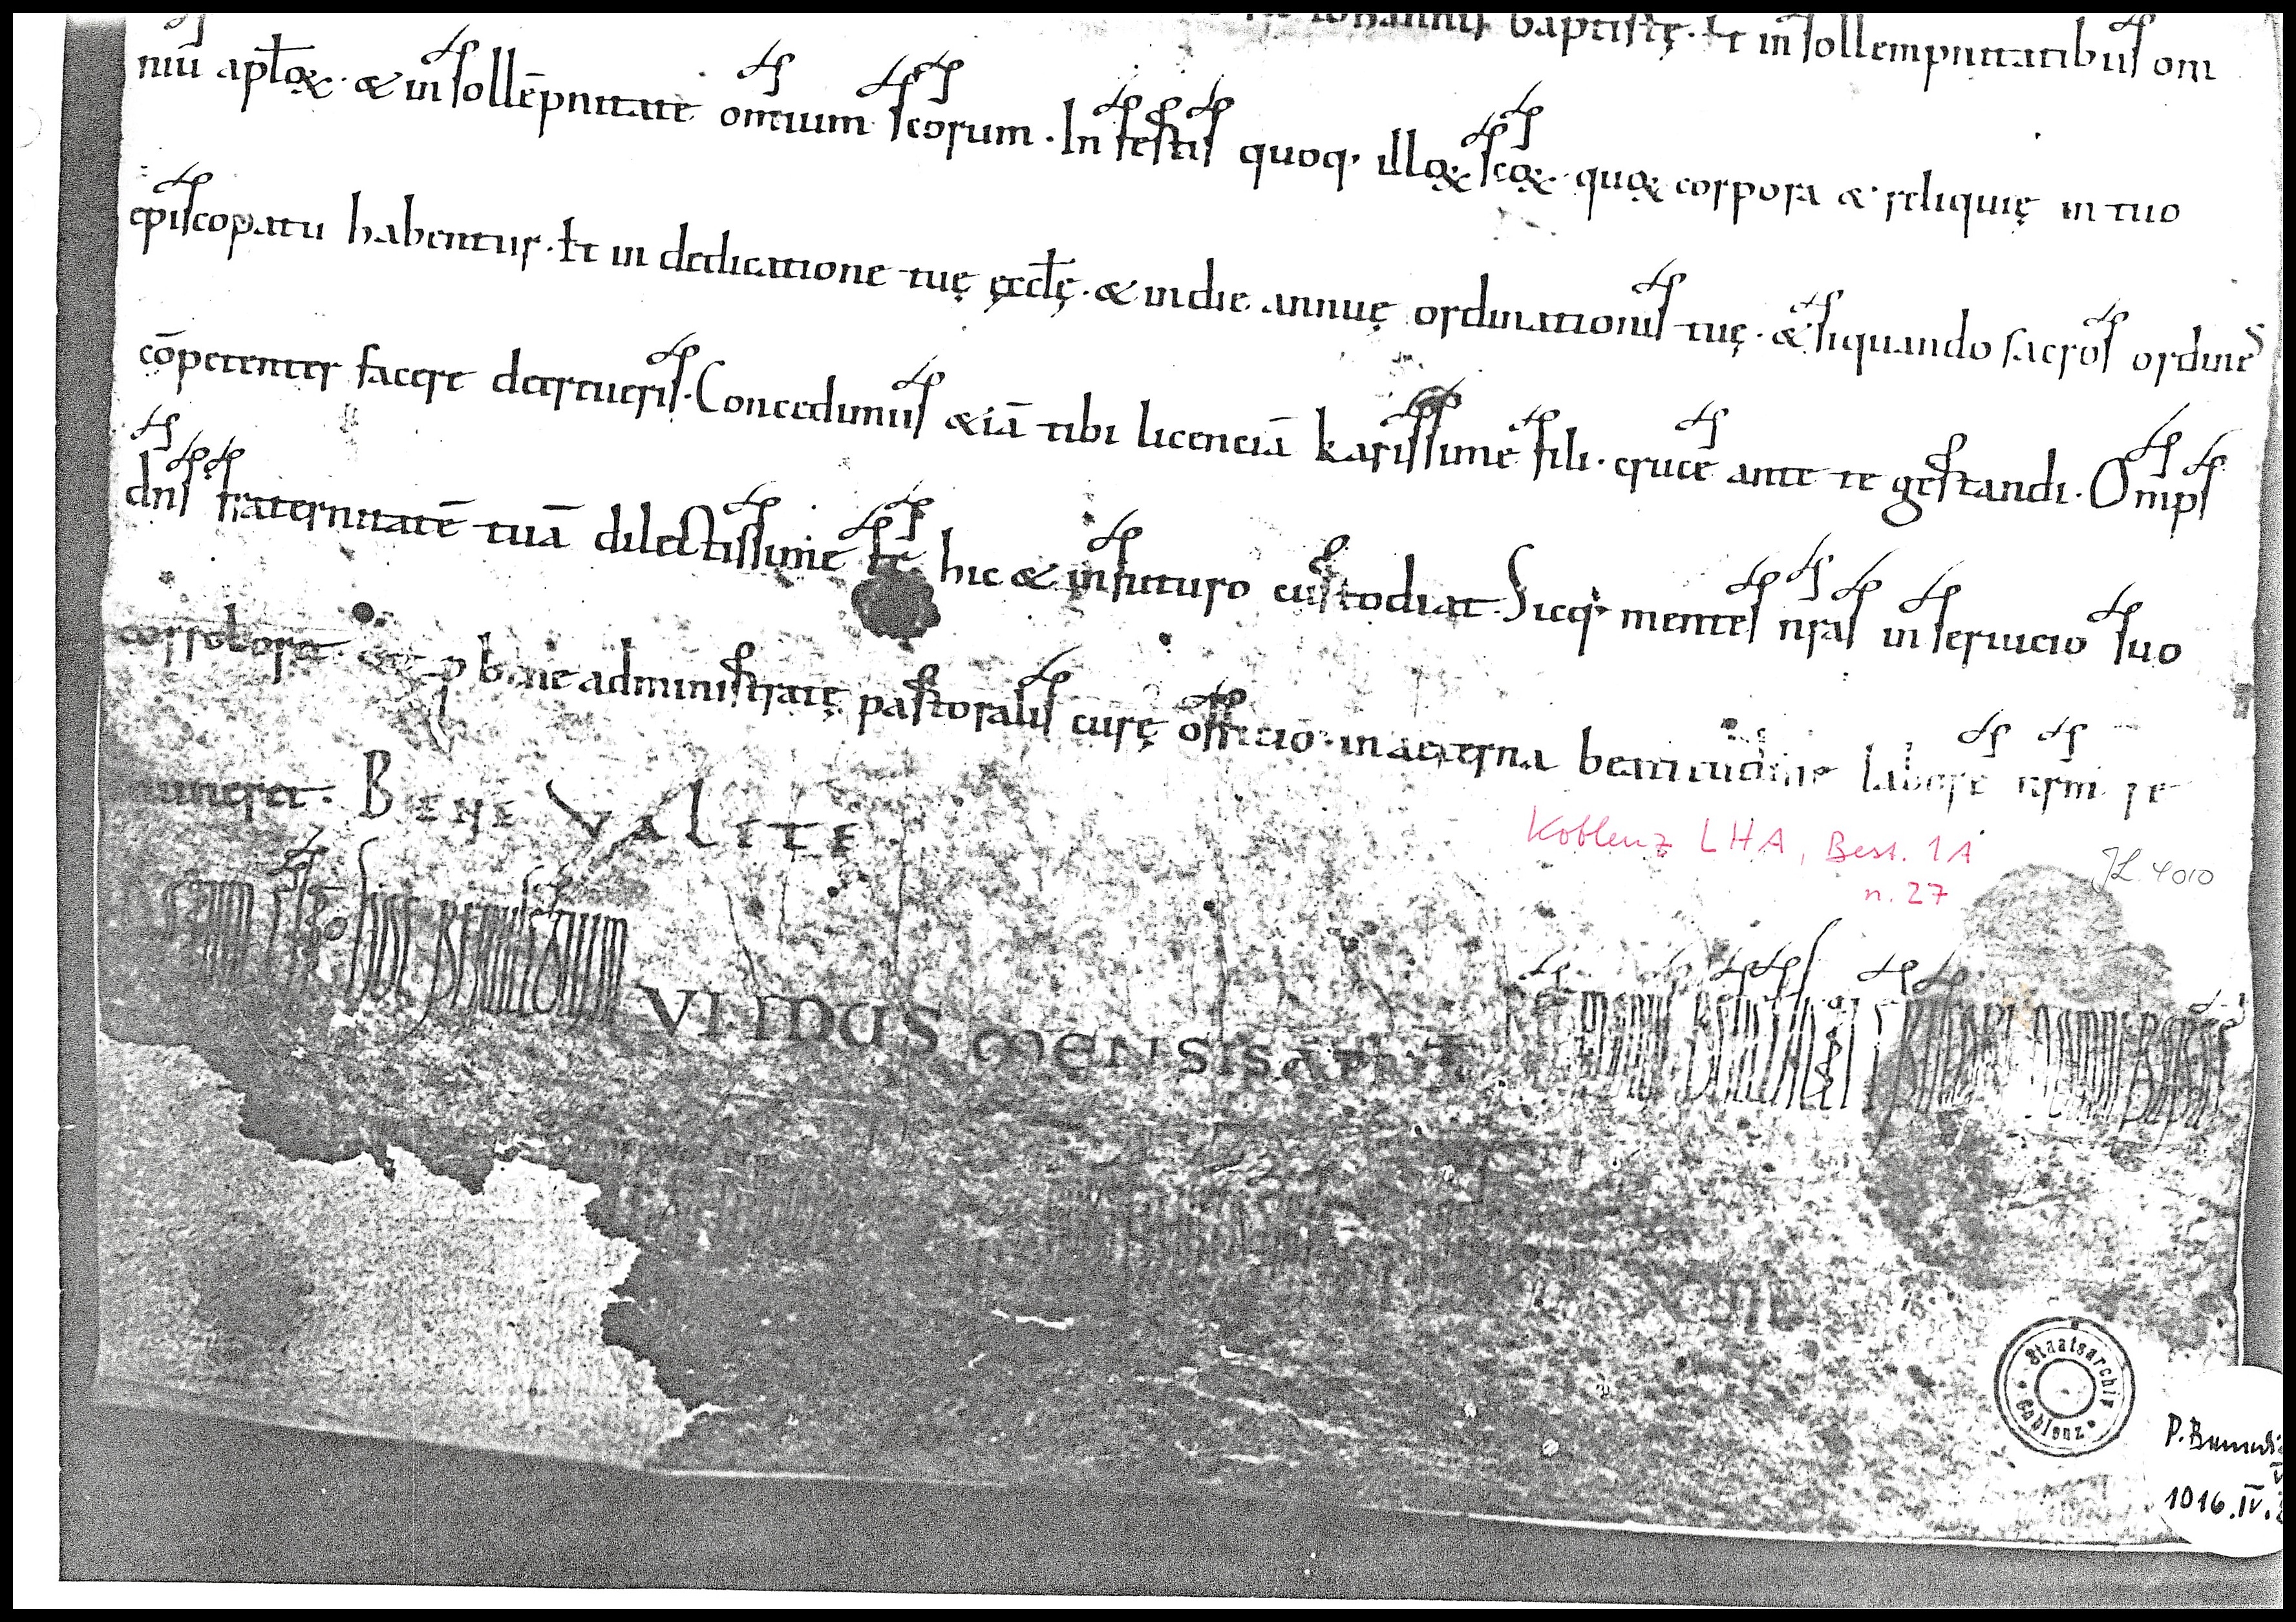 baptistę. Et in sollempnitatibus om
niū apłoꝝ. & in sollēpnitate omnium scorum. In festis quoq; illoꝝ scoꝝ. quoꝝ corpora & reliquię in tuo
ep̄iscopatu habentur. Et in dedicatione tuę ęccłę. & in die annuę ordinationis tuę. & siquando sacros ordines
cōpetenter facere decreueris. Concedimus &iā tibi licenciā karissime fili. crucē ante te gestandi. Omps
dn̄s fraternitatē tuā dilectissime fr̄ hic & in futuro custodiat. Sicq; mentes nr̄as in seruicio suo
corroboret. bene administratę pastoralis curę officio. in aeterna beatitudine labore nr̄m re
munera. BENE VALETE
VI IDUS MENSIS APRIL
Koblenz LHA, Best. 1A
n. 27
JL 4010
Staatsarchiv Coblenz
P. Benedi
1016. IV.